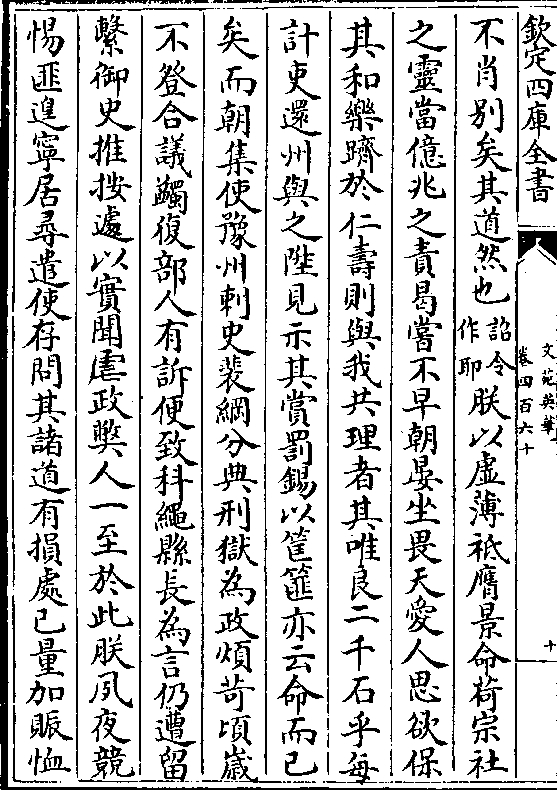 欽定四庫全書
文苑英華
卷四百六十
十
不肖別矣其道然也詔令作即朕以虛薄祗膺景命荷宗社
之靈當億兆之責曷嘗不早朝晏坐畏天愛人思欲保
其和樂躋於仁壽則與我共理者其唯良二千石乎每
計吏還州與之陛見示其賞罰錫以筐篚亦云命而已
矣而朝集使豫州刺史裴綱分典刑獄為政煩苛頃歲
不登合議蠲復部人有訴便致科繩縣長為言仍遭留
繫御史推按遽以實聞虐政弊人一至於此朕夙夜兢
惕匪遑寧居尋遣使存問其諸道有損處已量加賑恤